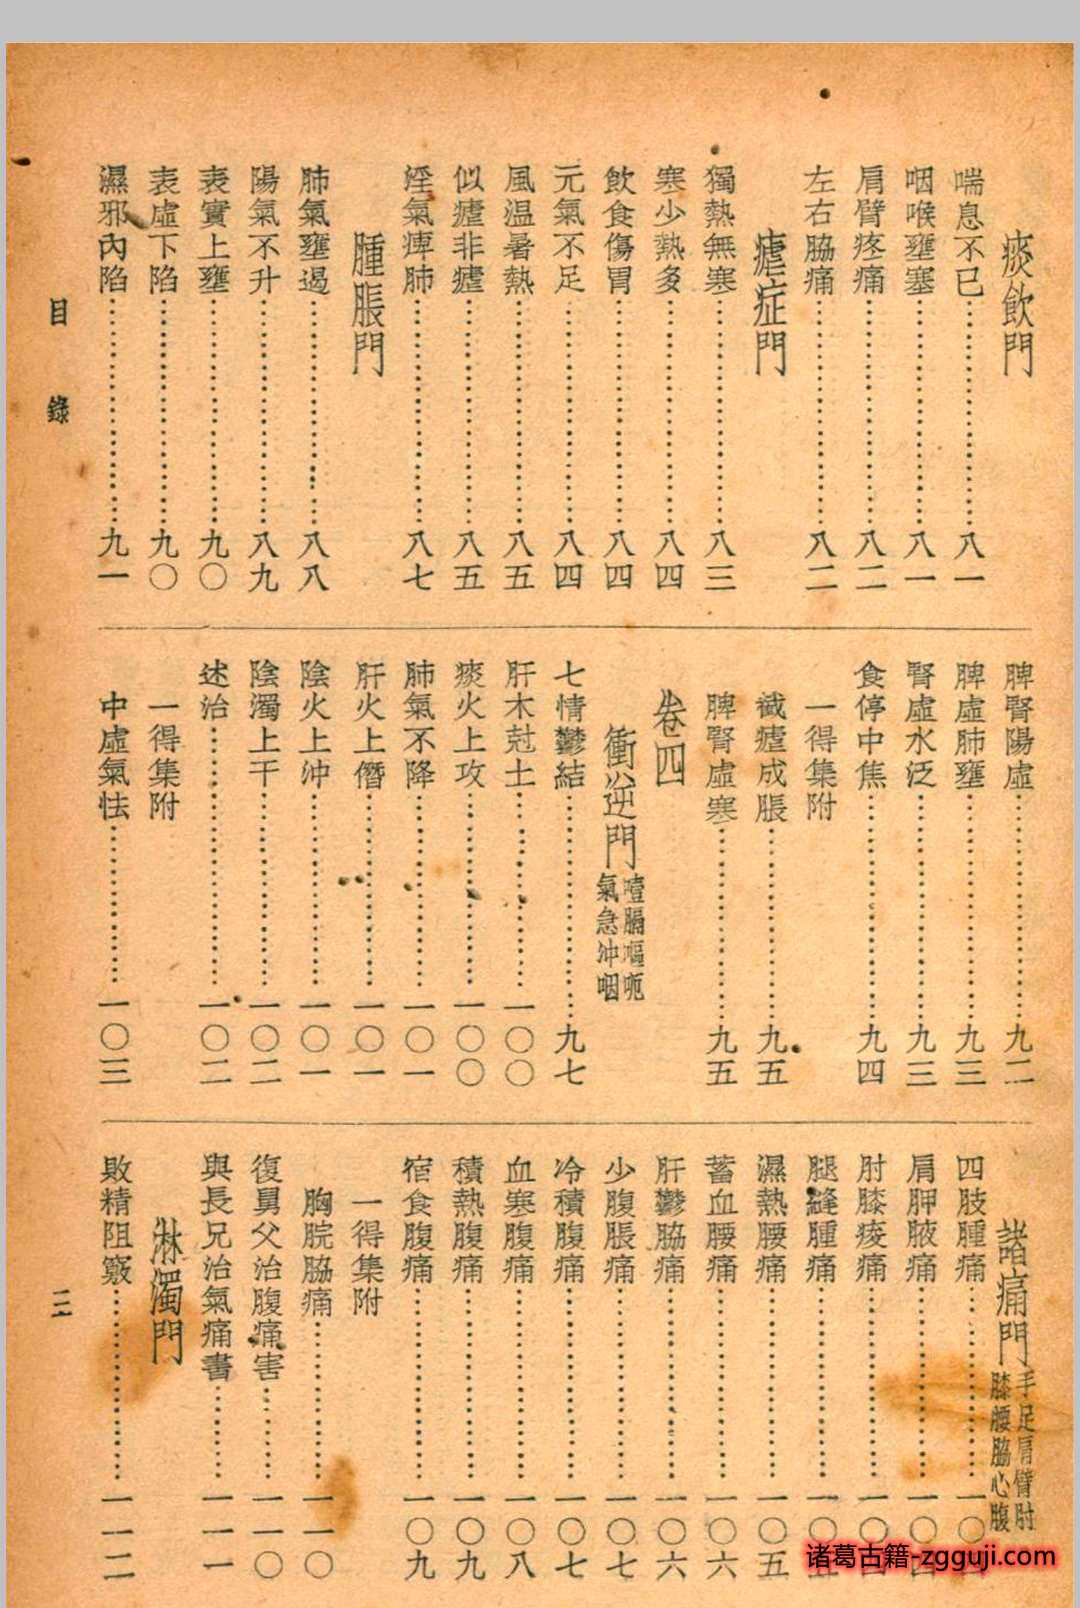 痰飲門
喘息不已……八一
咽喉壅塞……八一
肩臂疼痛……八二
左右脇痛……八二
瘧症門
獨熱無寒……八三
寒少熱多……八四
飲食傷胃……八四
元氣不足……八四
風温暑熱……八五
似瘧非瘧……八五
溼氣痺肺……八七
腫脹門
肺氣壅遏……八八
陽氣不升……八九
表實上壅……九〇
表虛下陷……九〇
濕邪內陷……九一
脾腎陽虛……九二
脾虛肺壅……九三
腎虛水泛……九三
食停中焦……九四
一得集附
截瘧成脹……九五
脾腎虛寒……九五
卷四
衝逆門 噎膈嘔呃氣急沖咽
七情鬱結……九七
肝木尅土……一〇〇
痰火上攻……一〇〇
肺氣不降……一〇一
肝火上僭……一〇一
陰火上沖……一〇一
陰濁上干……一〇二
述治……一〇二
一得集附
中虛氣怯……一〇三
諸痛門 手足肩臂肘膝腰脇心腹
四肢腫痛……一〇四
肩胛腋痛……一〇四
肘膝痠痛……一〇四
腿縫腫痛……一〇五
濕熱腰痛……一〇五
蓄血腰痛……一〇六
肝鬱脇痛……一〇六
少腹脹痛……一〇七
冷積腹痛……一〇七
血寒腹痛……一〇八
積熱腹痛……一〇九
宿食腹痛……一〇九
一得集附
胸脘脇痛……一一〇
復舅父治腹痛害……一一〇
與長兄治氣痛書……一一一
淋濁門
敗精阻竅……一一二
目錄
三
诸葛古籍-zgguji.com